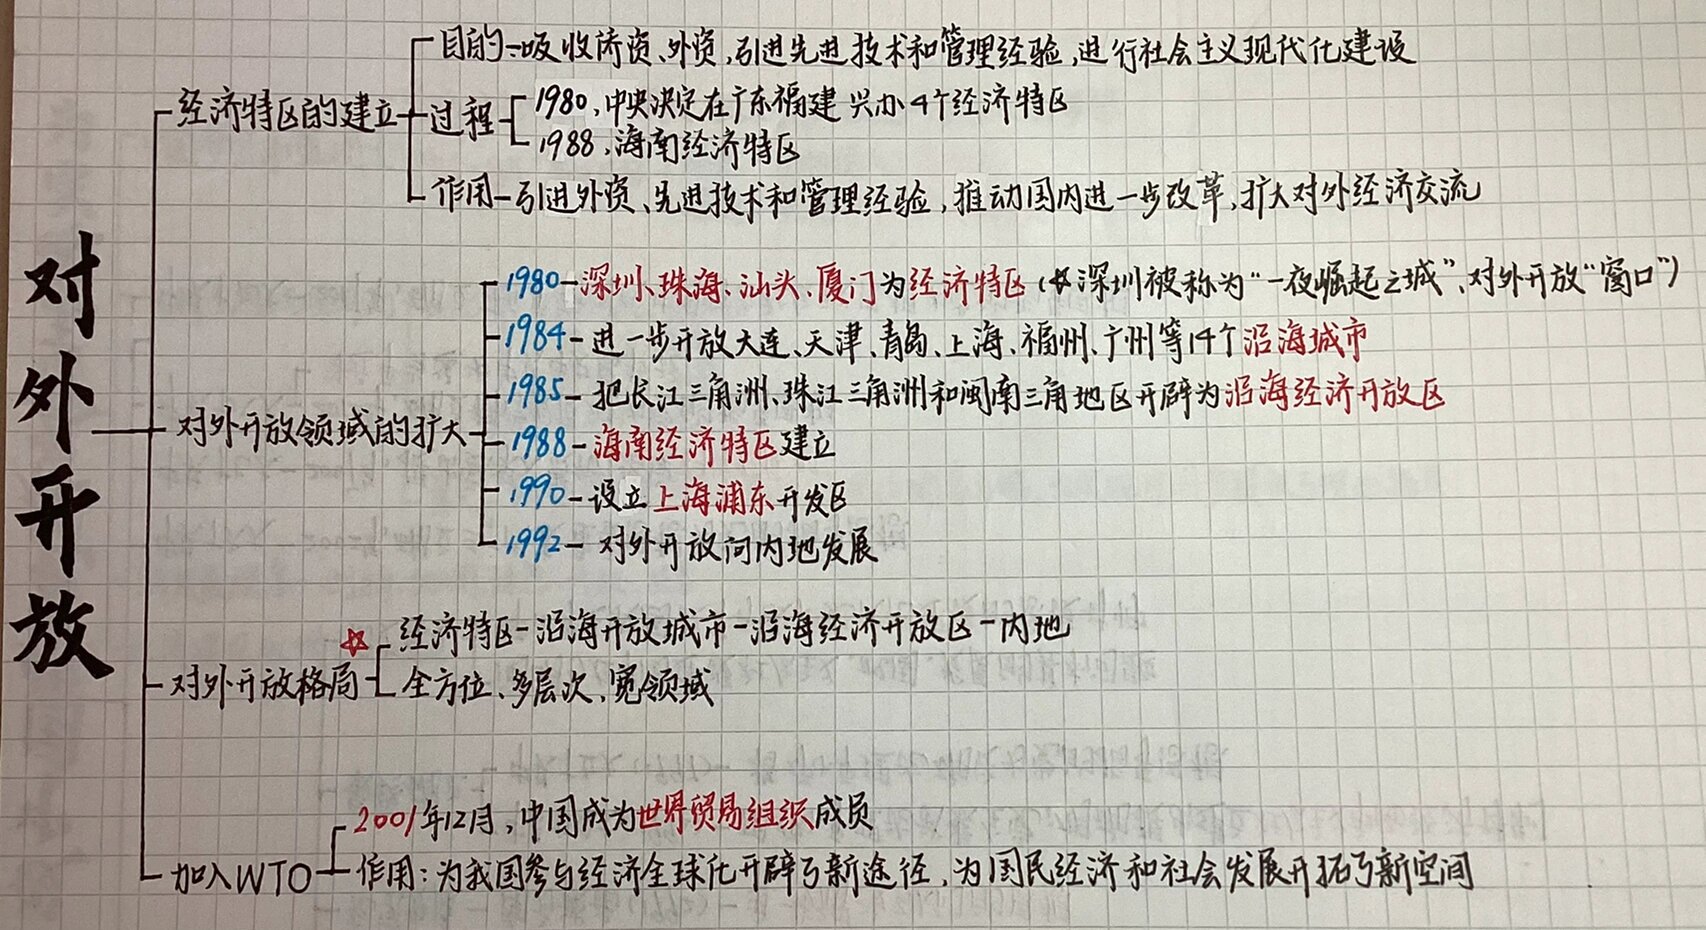 对外开放
经济特区的建立
目的-吸收侨资、外资,引进先进技术和管理经验,进行社会主义现代化建设
过程
1980,中央决定在广东福建兴办4个经济特区
1988,海南经济特区
作用-引进外资、先进技术和管理经验,推动国内进一步改革,扩大对外经济交流
对外开放领域的扩大
1980-深圳、珠海、汕头、厦门为经济特区(☆深圳被称为"一夜崛起之城"、对外开放"窗口")
1984-进一步开放大连、天津、青岛、上海、福州、广州等14个沿海城市
1985-把长江三角洲、珠江三角洲和闽南三角地区开辟为沿海经济开放区
1988-海南经济特区建立
1990-设立上海浦东开发区
1992-对外开放向内地发展
对外开放格局
☆经济特区-沿海开放城市-沿海经济开放区-内地
全方位、多层次、宽领域
加入WTO
2001年12月,中国成为世界贸易组织成员
作用:为我国参与经济全球化开辟了新途径,为国民经济和社会发展开拓了新空间